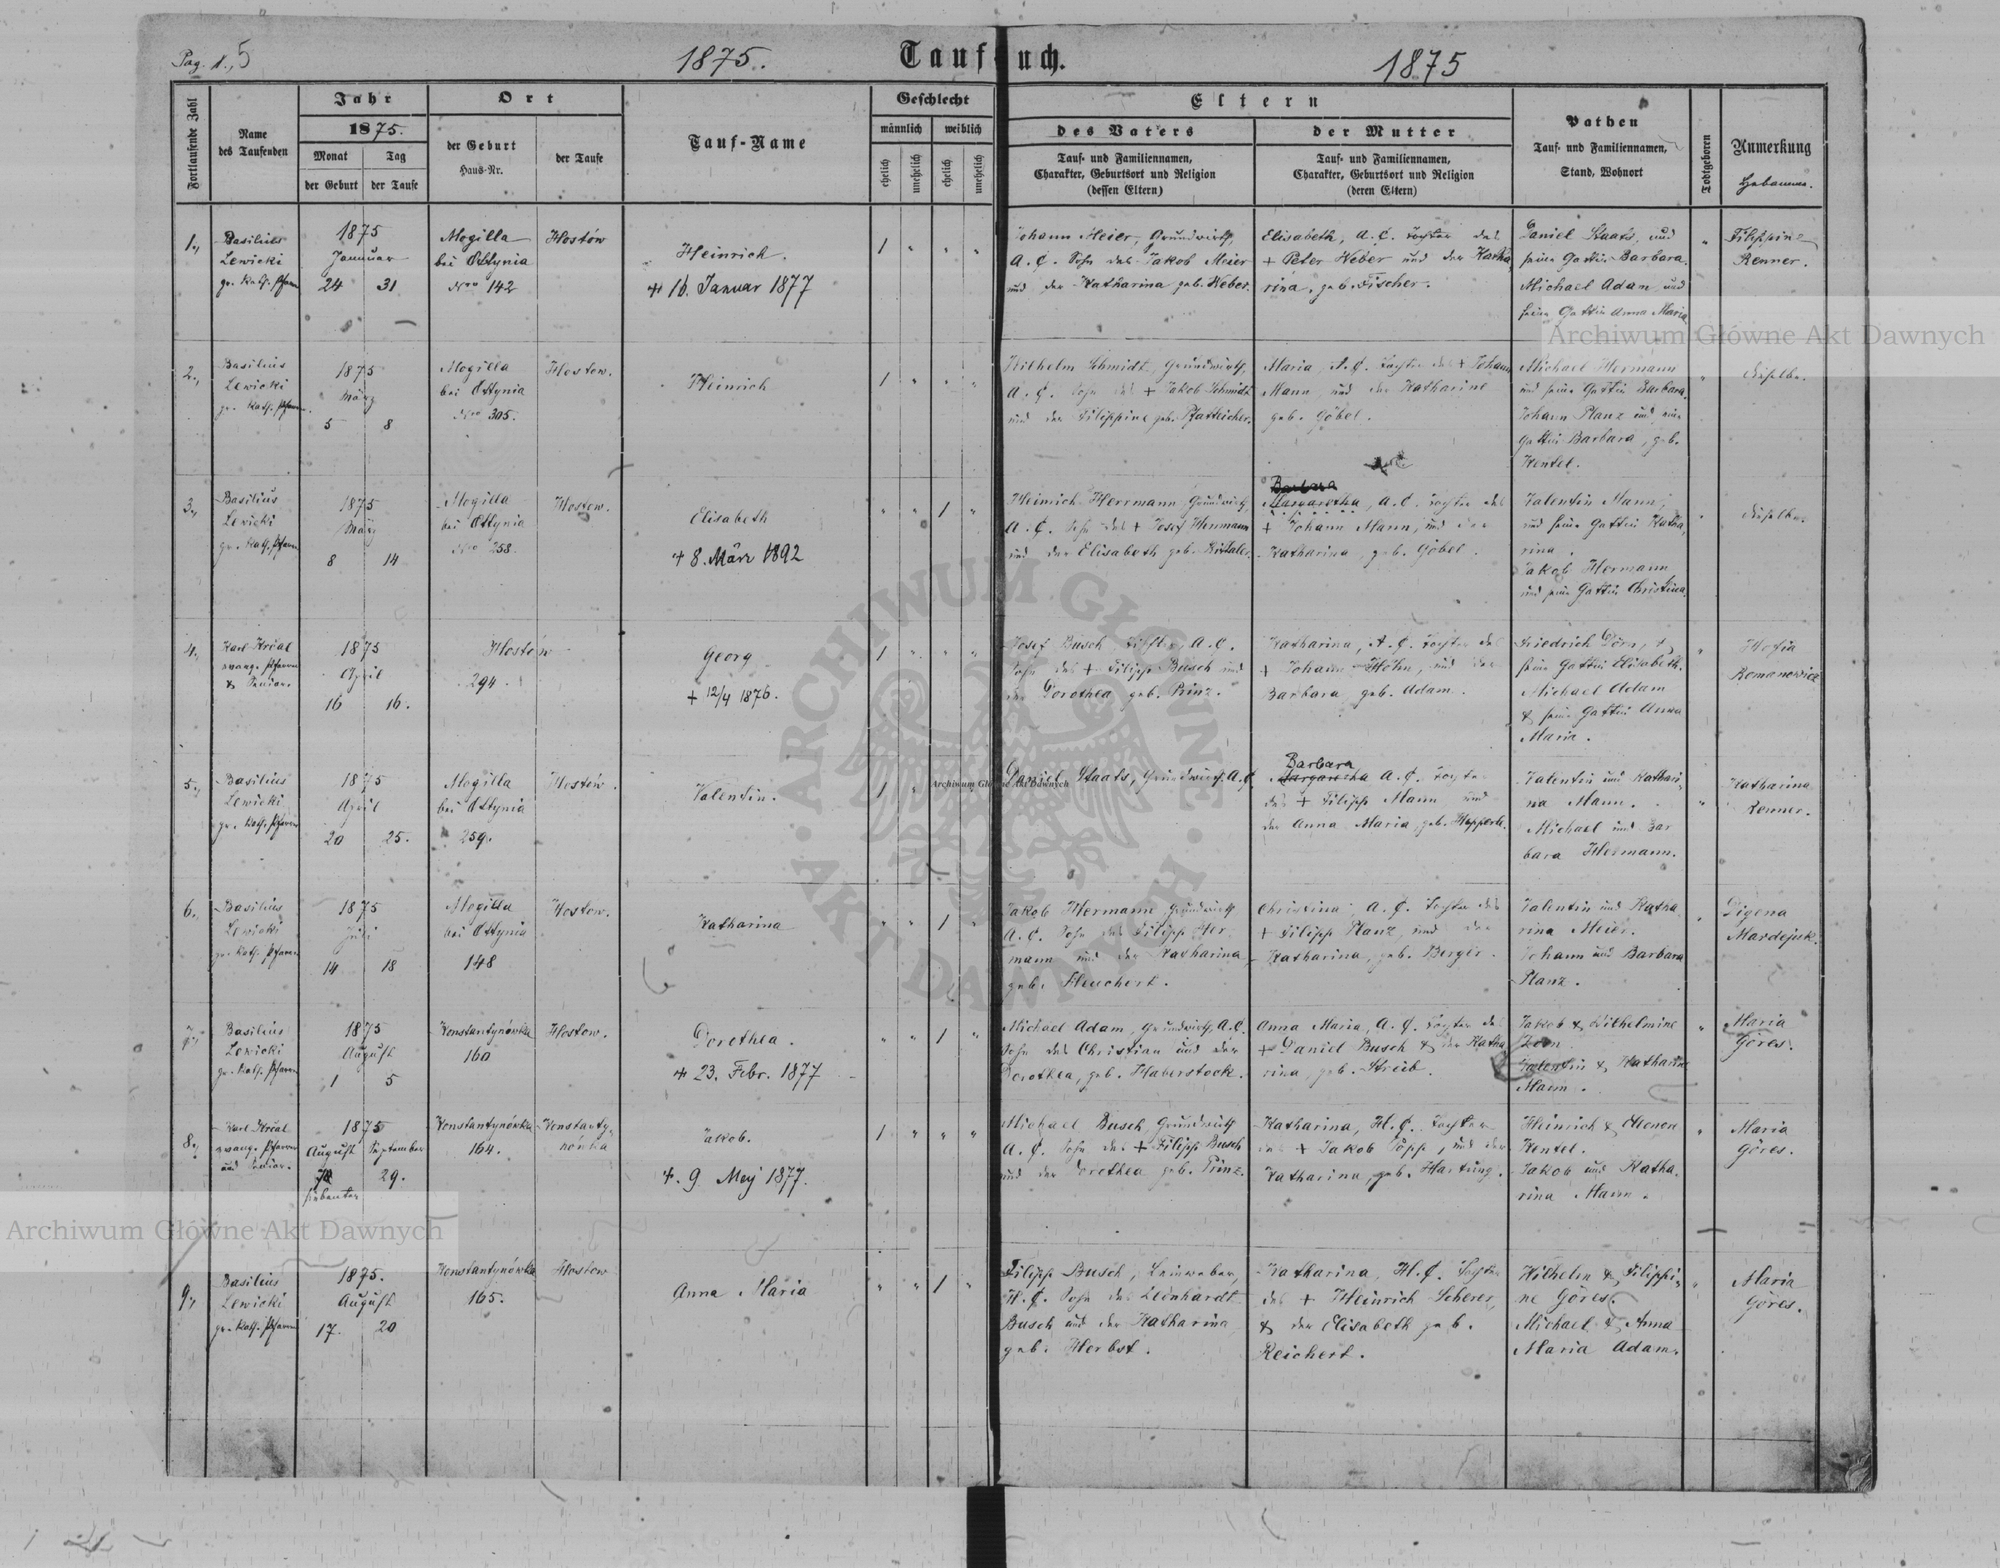 Pag. 1., 5
1875.
Taufbuch.
1875
Fortlaufende Zahl
Name
des Taufenden
Jahr
1875.
Monat
Tag
der Geburt
der Taufe
Ort
der Geburt
Haus-Nr.
der Taufe
Tauf-Name
Geschlecht
männlich
weiblich
ehelich
unehelich
ehelich
unehelich
Eltern
des Vaters
Tauf- und Familiennamen,
Charakter, Geburtsort und Religion
(dessen Eltern)
der Mutter
Tauf- und Familiennamen,
Charakter, Geburtsort und Religion
(deren Eltern)
Pathen
Tauf- und Familiennamen,
Stand, Wohnort
Todtgeboren
Anmerkung
Hebamme.
1.,
Basilius
Lewicki
gr. kath. Pfarrer
1875
Januar
24 31
Mogilla
bei Ottynia
Nro 142
Hostów
Heinrich.
+ 16. Januar 1877
1 " " "
Johann Meier, Grundwirth,
A. C. Sohn des Jakob Meier
und der Katharina geb. Weber.
Elisabeth, A. C. Tochter des
+ Peter Weber und der Katha
rina, geb. Fischer.
Daniel Staats, und
seine Gattin Barbara.
Michael Adam und
seine Gattin Anna Maria
"
Filippine
Renner.
2.,
Basilius
Lewicki
gr. kath. Pfarrer.
1875
März
5 8
Mogilla
bei Ottynia
Nro 305.
Hostow.
Heinrich
1 " " "
Wilhelm Schmidt, Grundwirth,
A. C. Sohn des + Jakob Schmidt
und der Filippine geb. Pfatteicher.
Maria, A. C. Tochter des + Johann
Mann, und der Katharine
geb. Göbel.
Michael Hermann
und seine Gattin Barbara
Johann Planz und seine
Gattin Barbara, geb.
Wentel.
"
dieselbe.
3.,
Basilius
Lewicki
gr. kath. Pfarrer
1875
März
8 14
Mogilla
bei Ottynia
Nro 258.
Hostow.
Elisabeth
+ 8. März 1892
" " 1 "
Heinrich Herrmann, Grundwirth,
A. C. Sohn des + Josef Hermann
und der Elisabeth geb.
Barbara
Margaretha, A. C. Tochter des
+ Johann Mann, und der
Katharina, geb. Göbel.
Valentin Mann,
und seine Gattin Katha,
rina.
Jakob Hermann
und seine Gattin Christina.
dieselbe.
4.,
Karl Król
evang. Pfarrer
& Senior.
1875
April
16 16.
Hostów
294.
Georg
+ 12/4 1876.
1 " " "
Josef Busch, A. C.
Sohn des + Filipp Busch und
der Dorothea, geb. Prinz.
Katharina, A. C. Tochter des
+ Johann Höhn, und der
Barbara, geb. Adam.
Friedrich Dörr, &
seine Gattin Elisabeth.
Michael Adam
& seine Gattin Anna
Maria.
"
Zofia
Romanowicz
5.,
Basilius
Lewicki
gr. kath. Pfarrer
1875
April
20 25.
Mogilla
bei Ottynia
259.
Hostów.
Valentin.
1 "
Daniel Staats, Grundwirth, A. C.
Barbara
Margaretha A. C. Tochter
des + Filipp Mann und
der Anna Maria, geb. Hupperle.
Valentin und Kathari-
na Mann.
Michael und Bar
bara Hermann.
"
Katharina
Renner.
6.,
Basilius
Lewicki
gr. kath. Pfarrer
1875
Juli
14 18
Mogilla
bei Ottynia
148
Hostow.
Katharina
" " 1 "
Jakob Hermann, Grundwirth
A. C. Sohn des Filipp Her
mann und der Katharina,
geb. Heuchert.
Christina, A. C. Tochter des
+ Filipp Planz, und der
Katharina, geb. Berger.
Valentin und Katha
rina Meier.
Johann und Barbara
Planz.
"
Digena
Mardejuk.
7.,
Basilius
Lewicki
gr. kath. Pfarrer
1875
August
1 5
Konstantynówka
160
Hostow.
Dorothea.
+ 23. Febr. 1877
" " 1 "
Michael Adam, Grundwirth, A. C.
Sohn des Christian und der
Dorothea, geb. Haberstock.
Anna Maria, A. C. Tochter des
+ Daniel Busch & der Katha
rina, geb. Streib.
Jakob & Wilhelmine
Valentin & Katharina
Mann.
"
Maria
Göres.
8.,
Karl Król
evang. Pfarrer
und Senior.
1875
August September
29.
siebenter
Konstantynówka
164.
Konstanty-
nówka
Jakob.
+ 9 Mej 1877.
1 " " "
Michael Busch, Grundwirth
A. C. Sohn des + Filipp Busch
und der Dorothea geb. Prinz.
Katharina, H. C. Tochter
des + Jakob Popp, und der
Katharina, geb. Hartung.
Heinrich & Elenon
Wentel.
Jakob und Katha.
rina Mann.
"
Maria
Göres.
9.,
Basilius
Lewicki
gr. kath. Pfarrer
1875.
August
17. 20
Konstantynówka
165.
Hostow
Anna Maria
" " 1 "
Filipp Busch, Leinweber,
H. C. Sohn des Leonhardt
Busch und der Katharina,
geb. Herbst.
Katharina, H. C. Tochter
des + Heinrich Scherer,
& der Elisabeth geb.
Reichert.
Wilhelm & Filippi,
ne Göres.
Michael & Anna
Maria Adam.
"
Maria
Göres.
Archiwum Główne Akt Dawnych
Archiwum Główne Akt Dawnych
Archiwum Główne Akt Dawnych
ARCHIWUM GŁÓWNE
AKT DAWNYCH